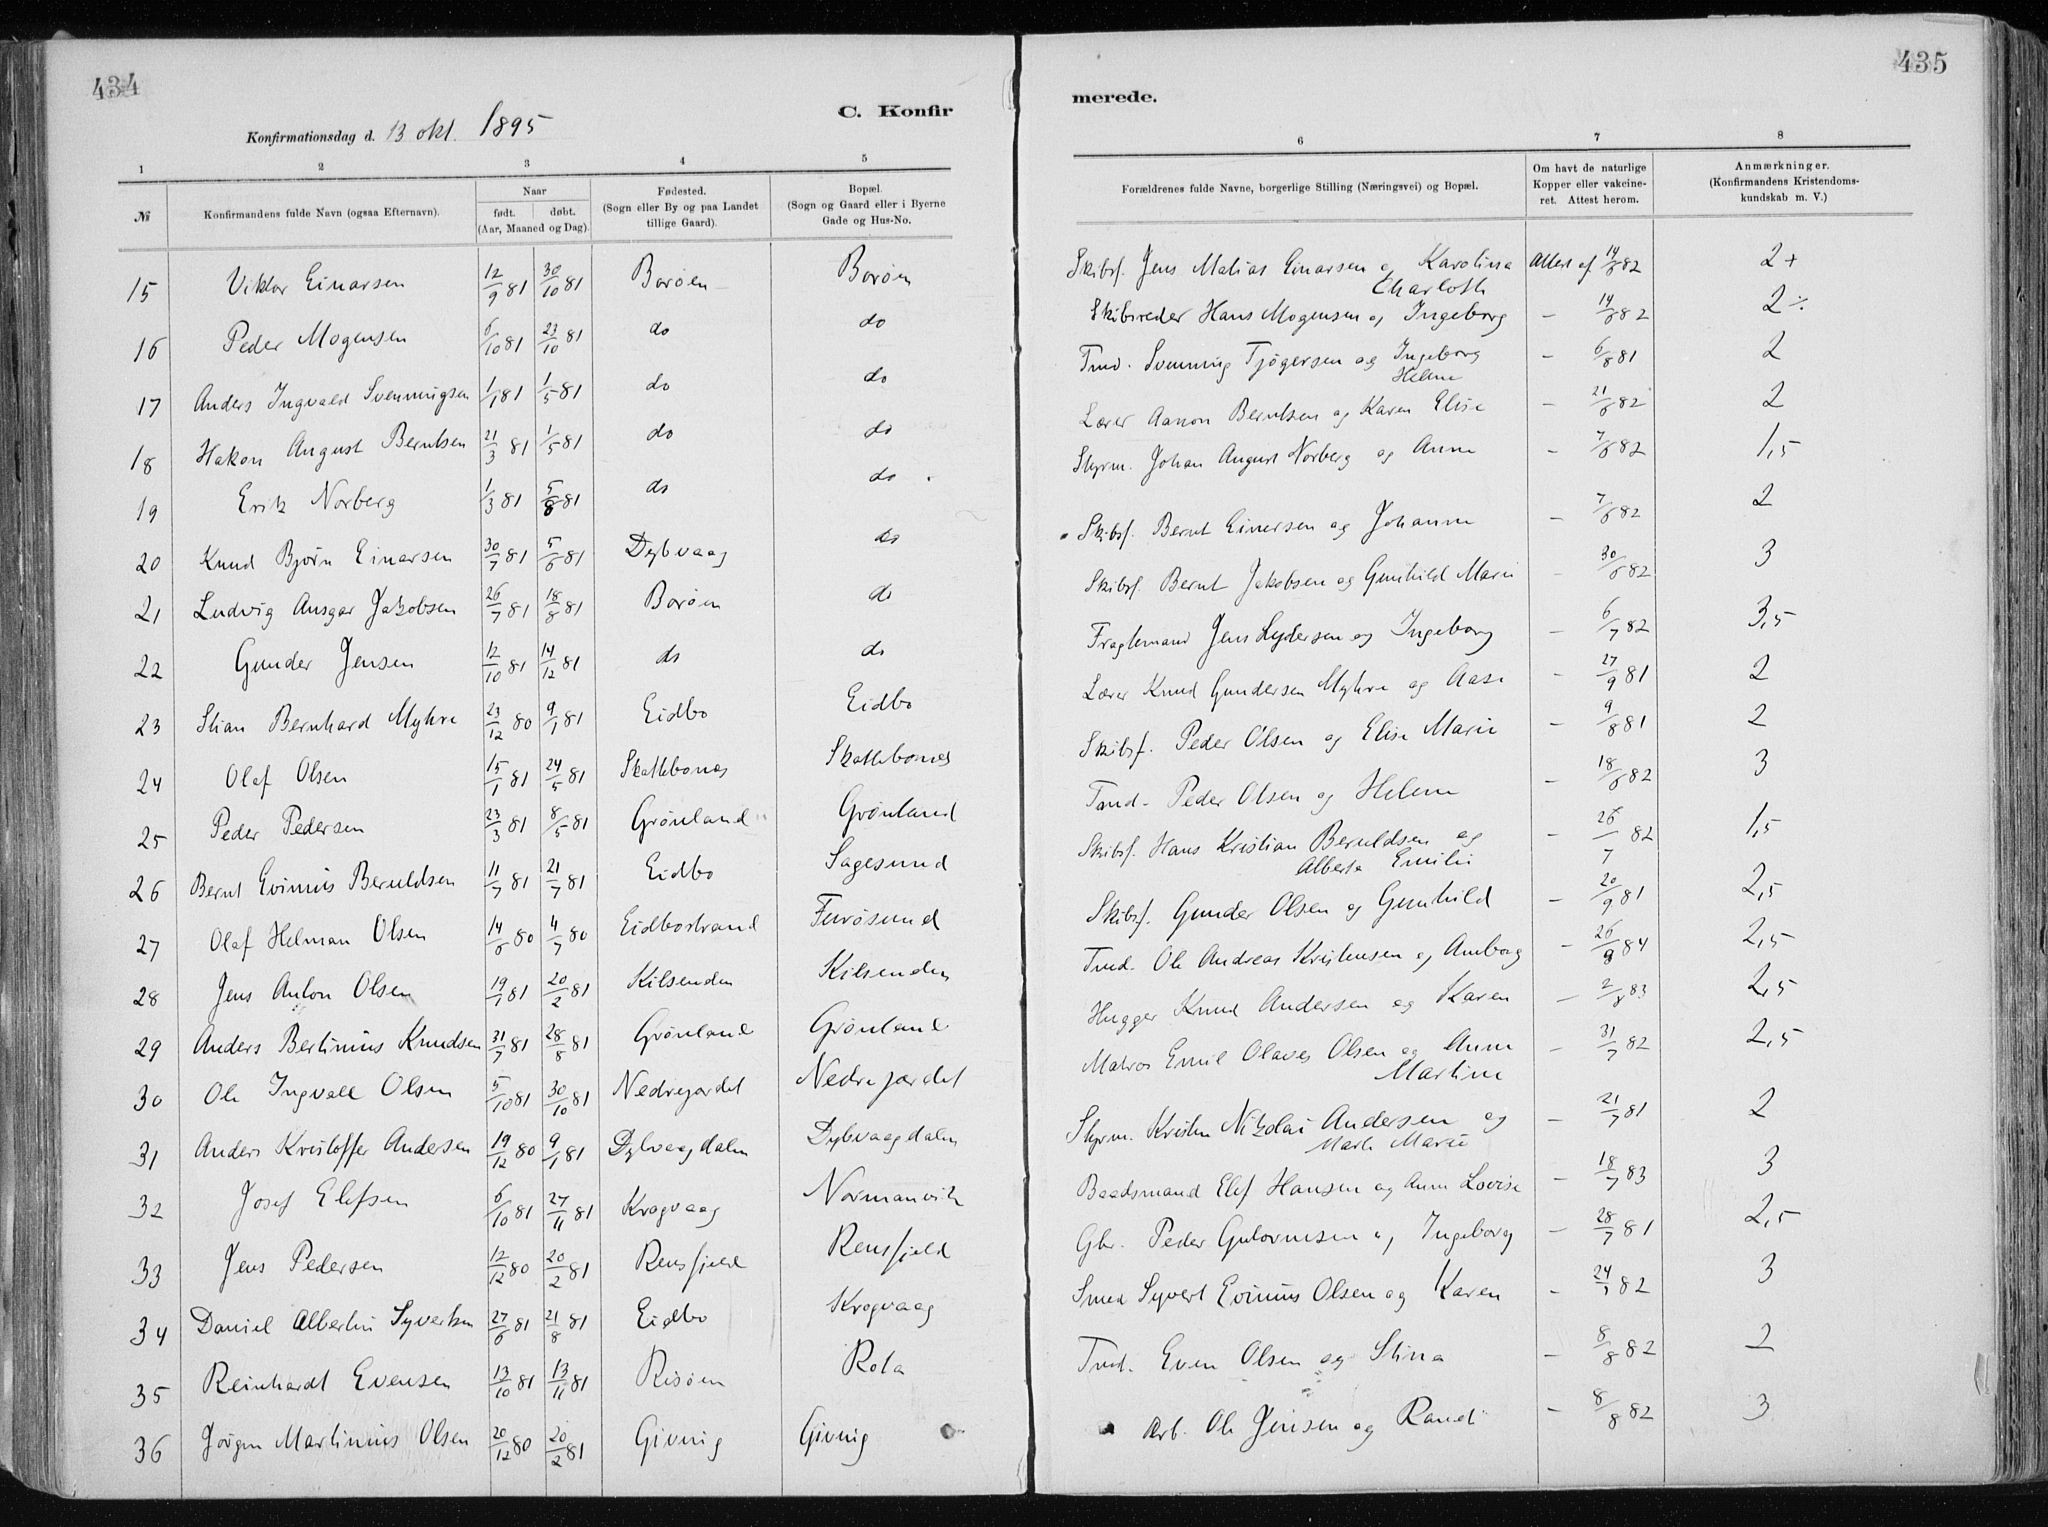 434
C. Konfir
Konfirmationsdag d. 13 okt. 1895
1 2 3 4 5
№ Konfirmandens fulde Navn (ogsaa Efternavn). Naar født. døbt. (Aar, Maaned og Dag). Fødested. (Sogn eller By og paa Landet tillige Gaard). Bopæl. (Sogn og Gaard eller i Byerne Gade og Hus-No.
15 Viktor Einarsen 12/9 81 30/10 81 Borøen Borøen
16 Peder Mogensen 6/10 81 23/10 81 do do
17 Anders Ingvald Svenningsen 1/1 81 1/5 81 do do
18 Hakon August Berntsen 21/3 81 1/5 81 do do
19 Erik Norberg 1/3 81 5/8 81 do do
20 Knud Bjørn Einarsen 30/7 81 5/6 81 Dybvaag do
21 Ludvig Ansgar Jakobsen 26/7 81 18/8 81 Borøen do
22 Gunder Jensen 12/10 81 14/12 81 do do
23 Stian Bernhard Myhre 23/12 80 9/1 81 Eidbo Eidbo
24 Olaf Olsen 15/1 81 24/5 81 Skottebones Skottebones
25 Peder Pedersen 23/3 81 8/5 81 Grønland Grønland
26 Bernt Evinius Beruldsen 11/7 81 21/7 81 Eidbo Sagesund
27 Olaf Helman Olsen 14/6 80 4/7 80 Eidbostrand Furøsund
28 Jens Anton Olsen 19/1 81 20/2 81 Kilsenden Kilsenden
29 Anders Bertinius Knudsen 31/7 81 28/8 81 Grønland Grønland
30 Ole Ingvald Olsen 5/10 81 30/10 81 Nedrejordet Nedrejordet
31 Anders Kristoffer Andersen 19/12 80 9/1 81 Dybvaagdalen Dybvaagdalen
32 Josef Elefsen 6/10 81 27/11 81 Krogvaag Normanvik
33 Jens Pedersen 12/12 80 20/2 81 Rensfjeld Rensfjeld
34 Daniel Albertin Syvertsen 27/6 81 21/8 81 Eidbo Krogvaag
35 Reinhardt Evensen 13/10 81 13/11 81 Risøen Rota
36 Jørgen Martinius Olsen 20/12 80 20/2 81 Givnig Givnig
435
merede.
6 7 8
Forældrenes fulde Navne, borgerlige Stilling (Næringsvei) og Bopæl. Om havt de naturlige Kopper eller vakcineret. Attest herom. Anmærkninger. (Konfirmandens Kristendomskundskab m. V.)
Skibsf. Jens Matias Einarsen og Karolina Attest af 14/6 82 2+
Charloth
Skibsreder Hans Mogensen og Ingeborg — 14/6 82 2÷
Tmd. Svenning Tjøgersen og Ingeborg — 6/8 81 2
Helene
Lærer Aanon Berntsen og Karen Elise — 21/6 82 2
Styrm. Johan August Norberg og Anne — 7/6 82 1,5
Skibsf. Bernt Einersen og Johanne — 7/6 82 2
Skibsf. Bernt Jakobsen og Gunhild Marie — 30/6 82 3
Fragtemand Jens Lydersen og Ingeborg — 6/7 82 3,5
Lærer Knud Gundersen Myhre og Aase — 27/9 81 2
Skibsf. Peder Olsen og Elise Marie — 9/8 81 2
Tmd. Peder Olsen og Helene — 18/6 82 3
Skibsf. Hans Kristian Beruldsen og — 26/7 82 1,5
Alberte Emilie
Skibsf. Gunder Olsen og Gunhild — 20/9 81 2,5
Tmd. Ole Andreas Kristensen og Anborg — 26/9 84 2,5
Hugger Knud Andersen og Karen — 2/8 83 2,5
Matros Emil Olaves Olsen og Anne — 31/7 82 2,5
Martine
Styrm. Kristen Nikolai Andersen og — 21/7 81 2
Marte Marie
Baadsmand Elef Hansen og Anne Lovise — 18/7 83 3
Gbr. Peder Gulovnsen og Ingeborg — 28/7 81 2,5
Smed Syvert Evinius Olsen og Karen — 24/7 82 3
Tmd. Even Olsen og Stina — 8/8 82 2
Arb. Ole Jensen og Randi — 8/8 82 3